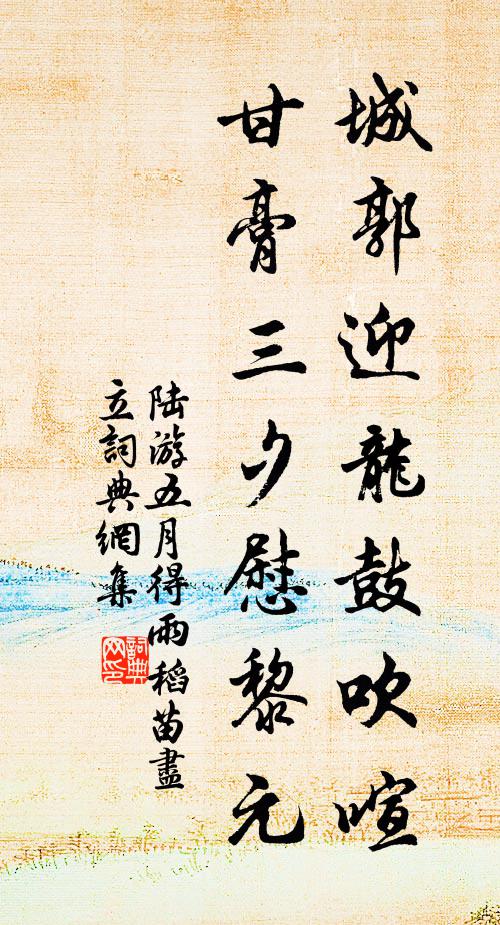 城郭迎龍鼓吹喧
甘膏三夕慰黎元
陸游五月得雨稻苗盡
立詞典網集
詞典网印